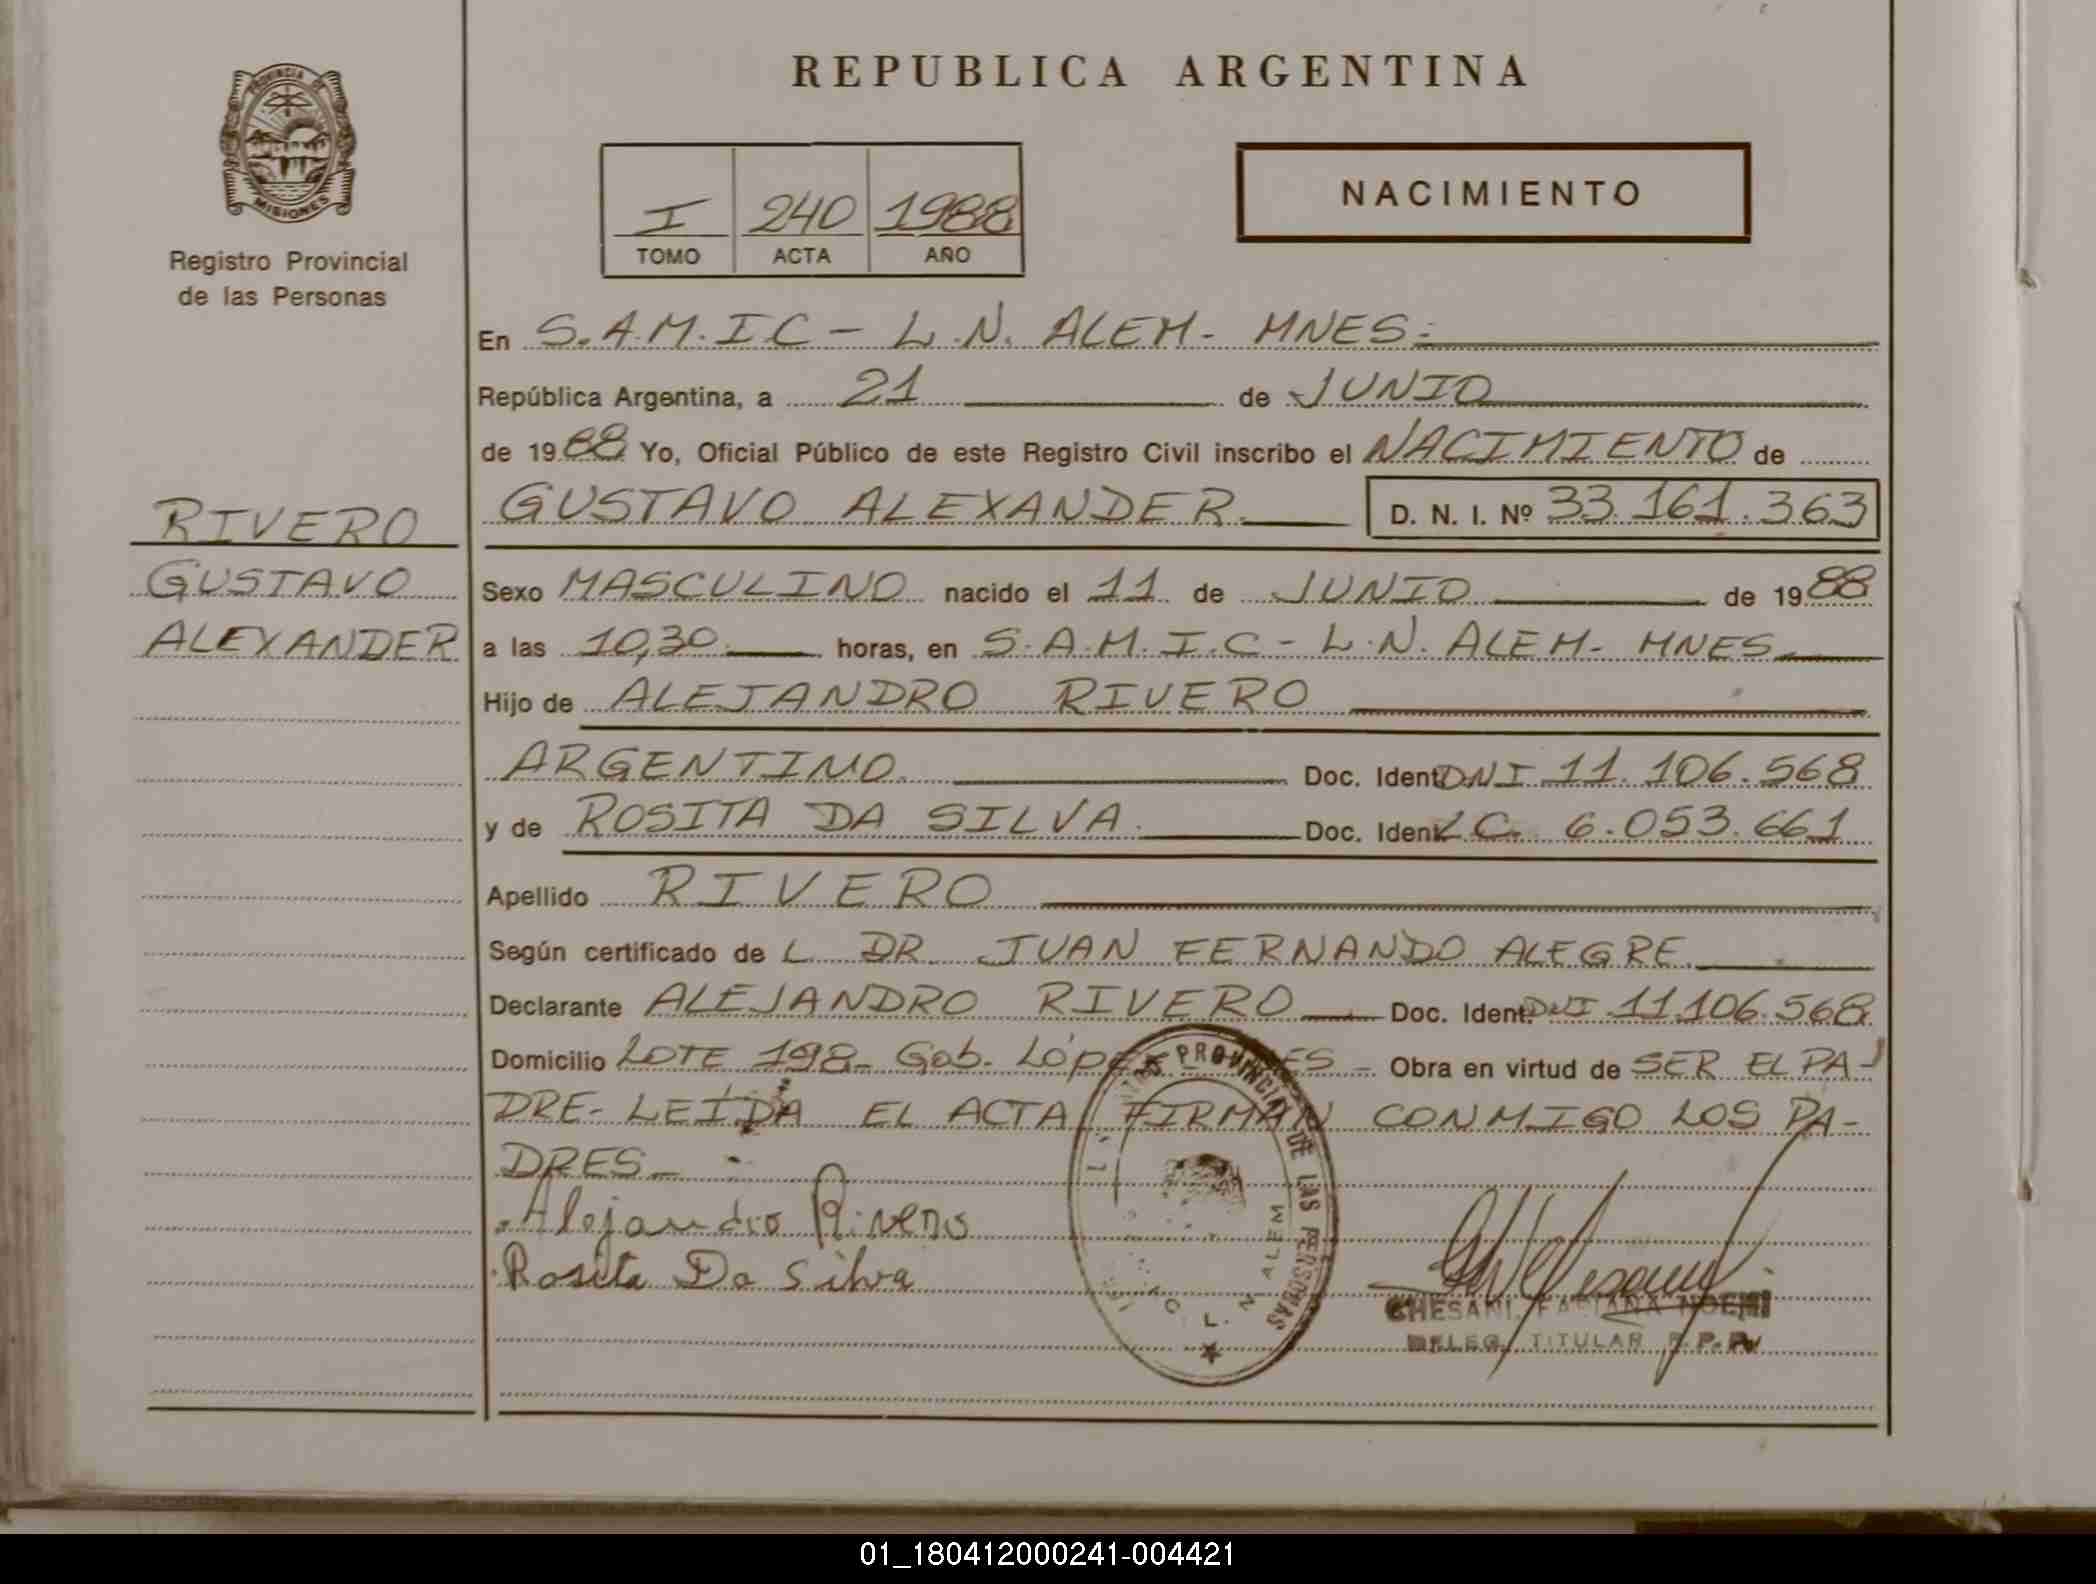 REPUBLICA ARGENTINA
PROVINCIA DE
MISIONES
Registro Provincial
de las Personas
I 240 1988
TOMO ACTA AÑO
NACIMIENTO
En S.A.M.I.C - L.N. ALEM - MNES.
República Argentina, a 21 de JUNIO
de 1988 Yo, Oficial Público de este Registro Civil inscribo el NACIMIENTO de
GUSTAVO ALEXANDER D. N. I. Nº 33.161.363
RIVERO
GUSTAVO
ALEXANDER
Sexo MASCULINO nacido el 11 de JUNIO de 1988
a las 10,30 horas, en S.A.M.I.C - L.N. ALEM - MNES
Hijo de ALEJANDRO RIVERO
ARGENTINO. Doc. Ident. DNI 11.106.568
y de ROSITA DA SILVA. Doc. Ident. L.C. 6.053.661
Apellido RIVERO
Según certificado de L DR JUAN FERNANDO ALEGRE
Declarante ALEJANDRO RIVERO Doc. Ident. DNI 11.106.568
Domicilio LOTE 198 - Gob. LÓPEZ - Obra en virtud de SER EL PA-
DRE- LEÍDA EL ACTA FIRMAN CONMIGO LOS PA-
DRES
Alejandro Rivero
Rosita Da Silva
PROVINCIAL DE LAS PERSONAS
L. N. ALEM
GHESANI, FABIANA NOEMI
DELEG. TITULAR R.P.P.
01_180412000241-004421